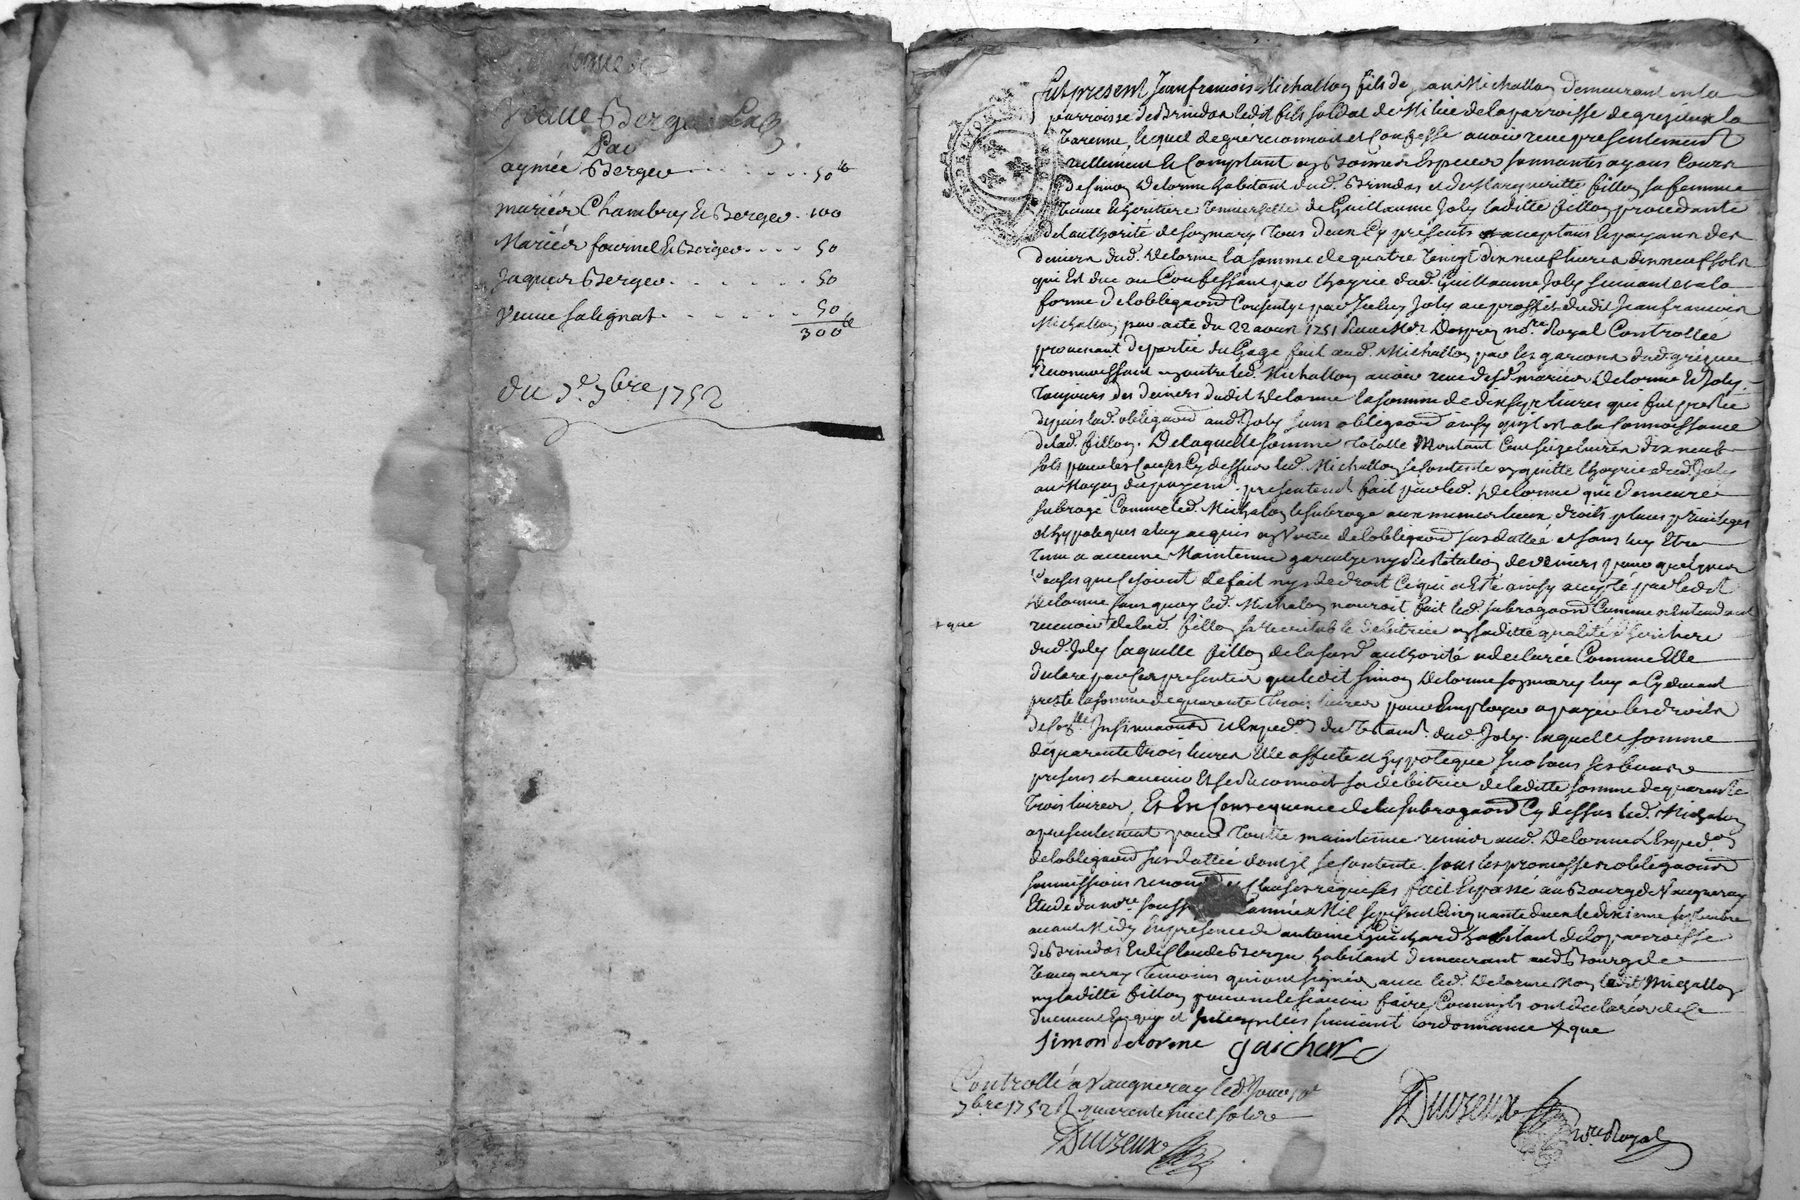 Veuve Berger
Par
aymée Berger 50
mariés Chambry et Berger 100
Mariés fournel et Berger 50
Jaques Berger 50
Veuve Salignat 50
300
du 9e 7bre 1752
Fut présent Jean francois Michallon fils de Jean Michallon demeurant en la
parroisse de Brindas ledit fils soldat de Milice de la parroisse de grezieu la
Varenne, lequel de gré reconnoit et Confesse avoir reçu presentement
reellement et Comptant en bonnes Especes sonnantes ayant Cours
de Simon Delorme habitant dud. Brindas et de Margueritte fillon sa femme
heritiere de Guillaume Joly laditte fillon procedante
de l'authorité de son mary tous deux Cy presents acceptans et payans des
deniers dud. Delorme la somme de quatre vingt dix neuf livres dix neuf sols
qui Est due au Confessant par l'hoyrie dud. Guillaume Joly suivant et a la
forme de l'obligaon Consentye par Joly au proffit dudit Jean francois
Michallon par acte du 22 avril 1751 Reçu Me nore Royal Controllée
provenant de partie du Gage fait aud. Michallon par les garcons dud.
Reconnoissant en outre led. Michallon avoir reçu desd. mariés Delorme et Joly
toujours des deniers dudit Delorme la somme de livres qui fut prestée
depuis lad. obligaon aud. Joly sans obligaon ainsy qu'il est a la Connoissance
de lad. fillon. De laquelle somme totalle Montant Cent seize livres dix neuf
sols pour les Causes Cy dessus led. Michallon se Contente en quitte l'hoyrie dud. Joly
au Moyen du payemt. presentemt fait par led. Delorme qui demeure
subrogé Comme led. Michallon le subroge aux mêmes lieux droits places privileges
et hypoteques a luy acquis en Vertu de l'obligaon susdattée et sans luy Etre
tenu a aucune Maintenue garentye ny Restitution de deniers pour quelques
Causes que ce soient de fait ny de droit Ce qui a Eté ainsy accepté par ledit
Delorme sans quoy led. Michallon n'auroit fait led. subrogaon Comme n'entendant
+ que
de lad. fillon sa veritable debitrice en saditte qualité d'heritiere
dud. Joly laquelle fillon de la susd. authorité a declarée Comme Elle
declare par ces presentes que ledit Simon Delorme son mary luy a Cy devant
presté la somme de quarente trois livres pour Employer a payer les droits
de Insinuaon et Expedon du Testamt. dud. Joly. laquelle somme
de quarente trois livres Elle affecte et hypoteque sur tous ses biens
presens et avenir Et se Reconnoit sa débitrice de laditte somme de quarente
trois livres, Et En Consequence de la subrogaon Cy dessus led. Michallon
a presentement pour toutte maintenue remis aud. Delorme Expedon
de l'obligaon susdattée dont il se Contente. sous les promesses obligaons
soumissions renonc Clauses requises fait et passé au Bourg de Vaugneray
Etude du nore souss l'année Mil sept cent Cinquante deux le dixieme septembre
avant Midy En presence de antoine Guichard habitant de la parroisse
de Brindas Et de Claude Berger habitant demeurant aud. Bourg de
Vaugneray temoins qui ont signés avec led. Delorme Non ledit Michallon
ny laditte fillon pour ne le scavoir faire Comm'ils ont declarés de ce
duement Enquis et Interpellés suivant l'ordonnance + que
Simon delorme guichard
Controllé a Vaugneray led. Jour 10e
7bre 1752 R quarente huit sols
Duvzeux
Duvzeux nore Royal